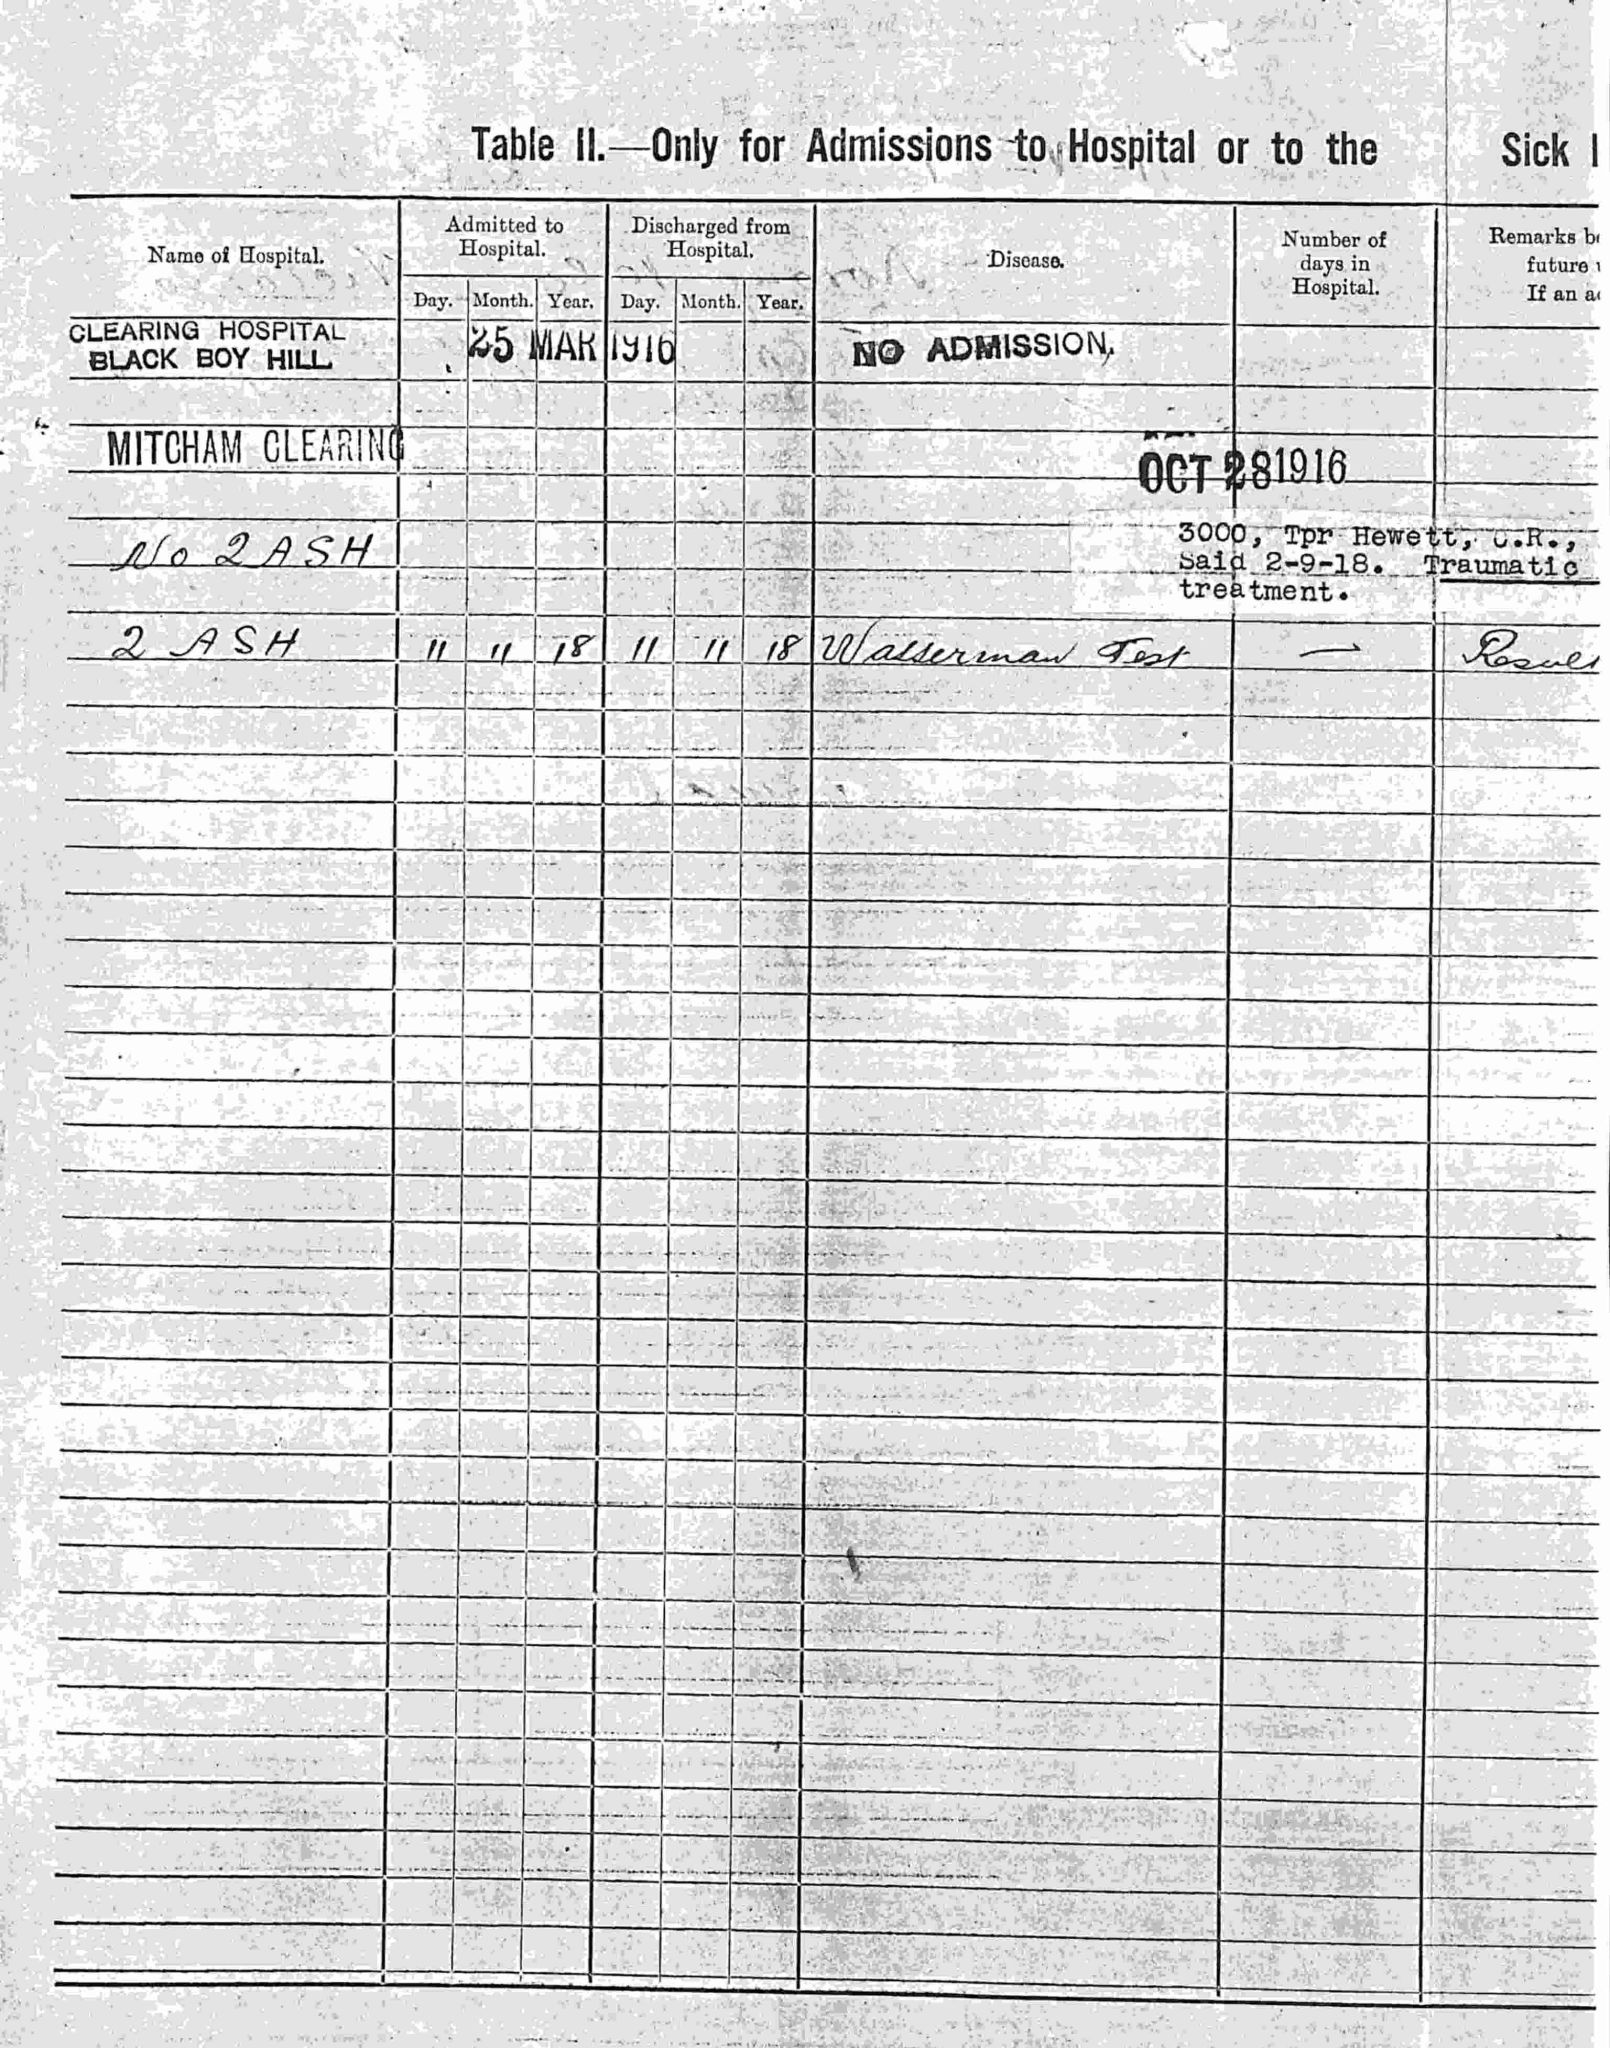 Table II.—Only for Admissions to Hospital or to the Sick
Name of Hospital.
Admitted to Hospital.
Discharged from Hospital.
Disease.
Number of days in Hospital.
Remarks
future
If an
Day. Month. Year. Day. Month. Year.
CLEARING HOSPITAL
BLACK BOY HILL
25 MAR 1916
NO ADMISSION,
MITCHAM CLEARING
OCT 28 1916
No 2 ASH
3000, Tpr Hewett, C.R.,
Said 2-9-18. Traumatic
treatment.
2 ASH 11 11 18 11 11 18 Wasserman Test — Result